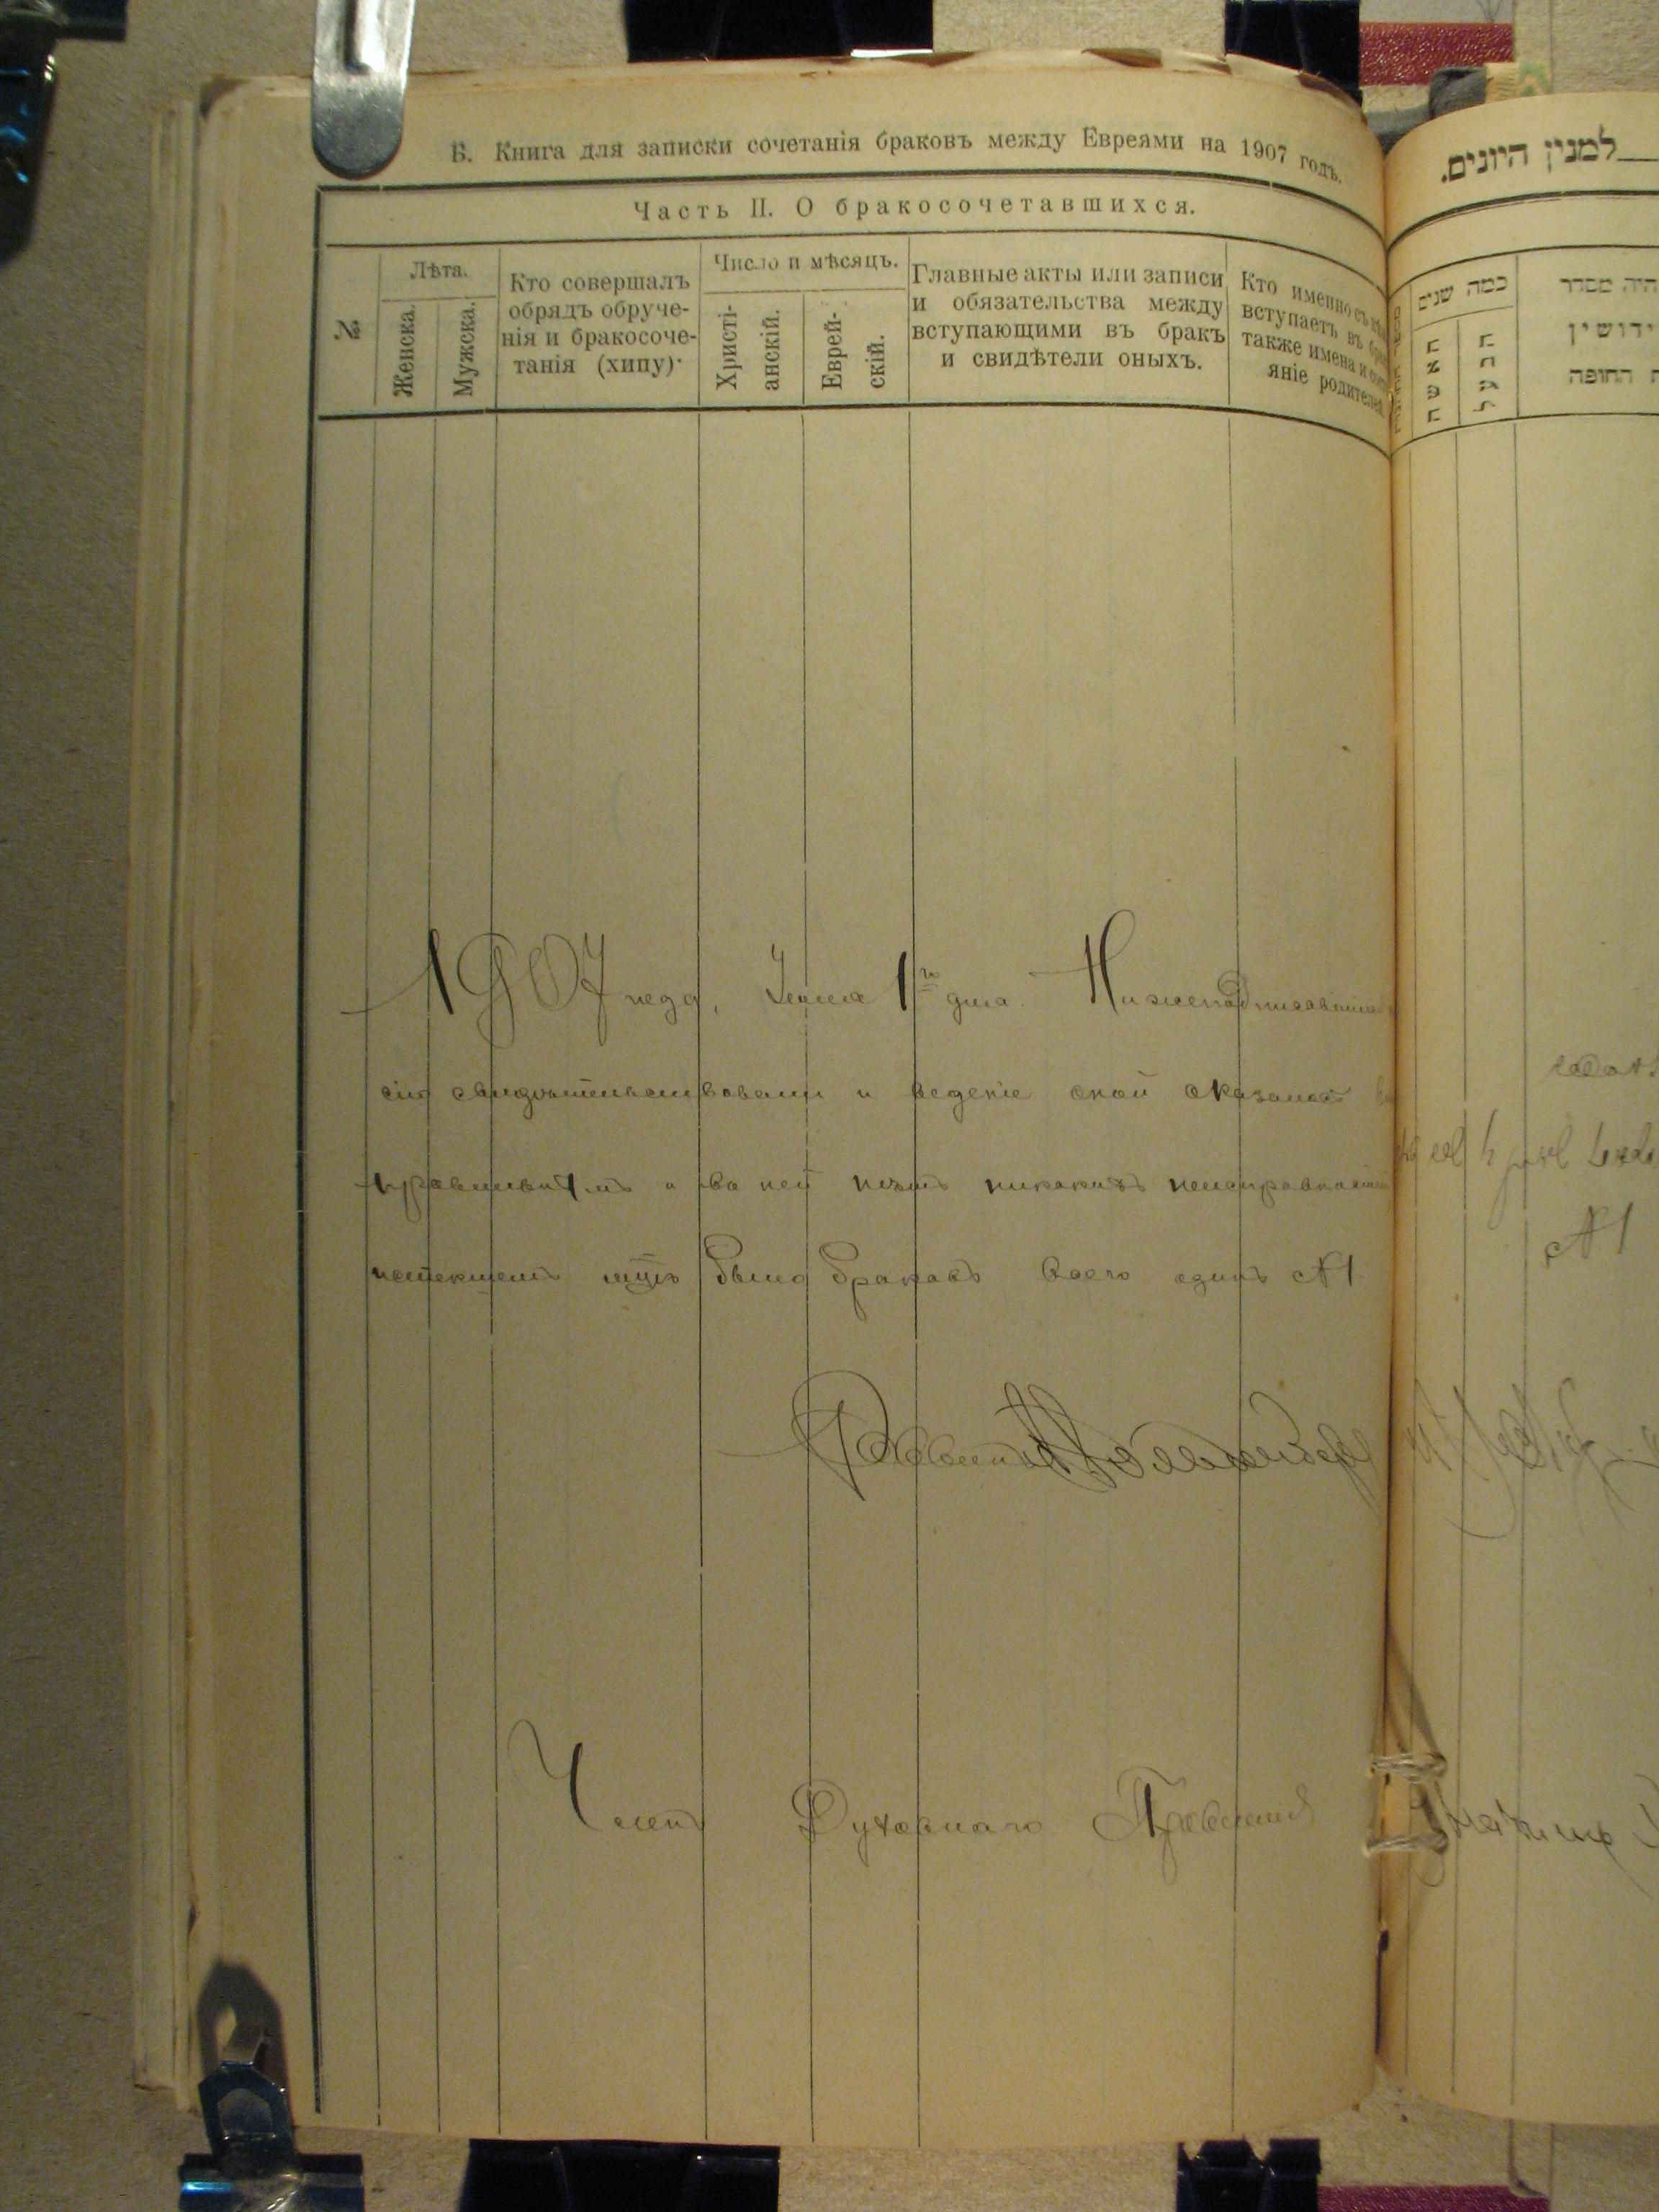 Б. Книга для записки сочетанія браковъ между Евреями на 1907 годъ.
Часть II. О бракосочетавшихся.
№
Лѣта.
Женска.
Мужска.
Кто совершалъ
обрядъ обруче-
нія и бракосоче-
танія (хипу).
Число и мѣсяцъ.
Христі-
анскій.
Еврей-
скій.
Главные акты или записи
и обязательства между
вступающими въ бракъ
и свидѣтели оныхъ.
Кто именно съ
вступаетъ въ
также имена и
яніе родителей
1907 года, 1го дня. Нижеподписавшіе
сію свидѣтельствовали и веденіе оной оказалось
правильнымъ и въ ней нѣтъ никакихъ неисправностей
истекшемъ мцѣ было браковъ всего одинъ №1
Раввинъ
Членъ Духовнаго Правленія
למנין היונים.
כמה שנים
האשה
הבעל
היה מסדר
החופה
№1